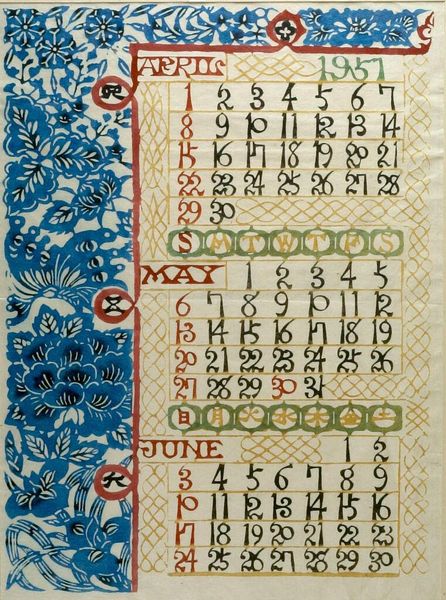 APRIL 1951
四
1 2 3 4 5 6 7
8 9 10 11 12 13 14
15 16 17 18 19 20 21
22 23 24 25 26 27 28
29 30
S M T W T F S
MAY 1 2 3 4 5
五
6 7 8 9 10 11 12
13 14 15 16 17 18 19
20 21 22 23 24 25 26
27 28 29 30 31
日 月 火 水 木 金 土
JUNE 1 2
六
3 4 5 6 7 8 9
10 11 12 13 14 15 16
17 18 19 20 21 22 23
24 25 26 27 28 29 30